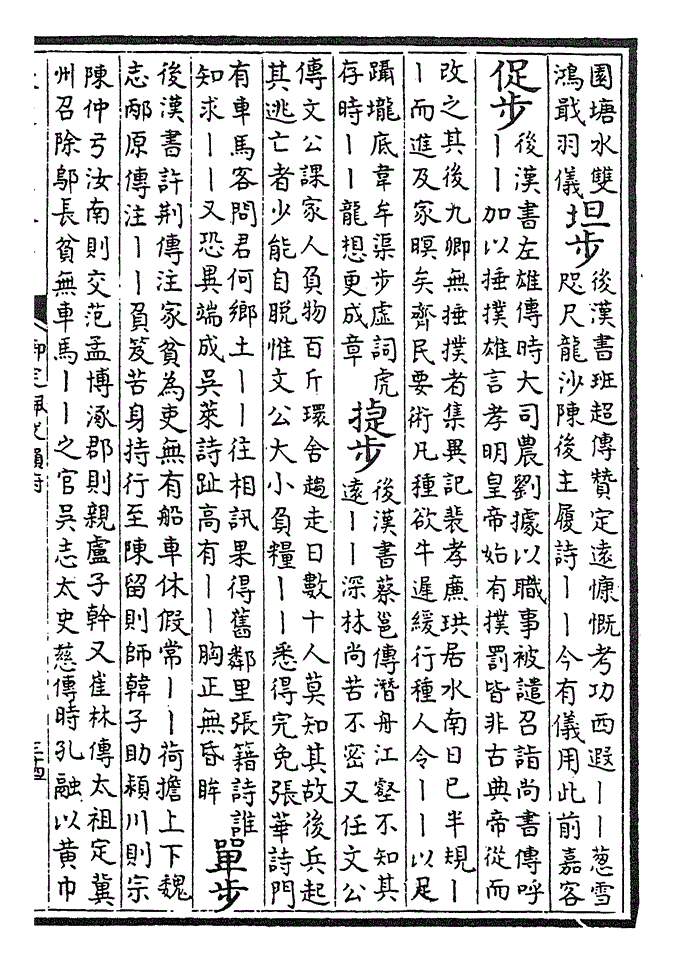 園塘水雙
鴻戢羽儀
坦步
後漢書班超傳贊定遠慷慨考功西遐丨丨葱雪
咫尺龍沙陳後主履詩丨丨今有儀用此前嘉客
促步
後漢書左雄傳時大司農劉據以職事被譴召詣尚書傳呼
丨丨加以捶撲雄言孝明皇帝始有撲罰皆非古典帝從而
改之其後九卿無捶撲者集異記裴孝廉珙居水南日已半規丨
丨而進及家暝矣齊民要術凡種欲牛遲緩行種人令丨丨以足
躡壠底韋牟渠步虛詞虎
存時丨丨龍想更成章
捷步
後漢書蔡邕傳潛舟江壑不知其
遠丨丨深林尚苦不密又任文公
傳文公課家人負物百斤環舍趨走日數十人莫知其故後兵起
其逃亡者少能自脫惟文公大小負糧丨丨悉得完免張華詩門
有車馬客問君何鄉土丨丨往相訊果得舊鄰里張籍詩誰
知求丨丨又恐異端成吳萊詩趾高有丨丨胸正無昏眸
單步
後漢書許荆傳注家貧為吏無有船車休假常丨丨荷擔上下魏
志邴原傳注丨丨負笈苦身持行至陳留則師韓子助潁川則宗
陳仲弓汝南則交范孟博涿郡則親盧子幹又崔林傳太祖定冀
州召除鄔長貧無車馬丨丨之官吳志太史慈傳時孔融以黄巾
御定佩文韻府
三十四